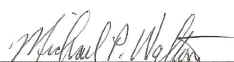 Michael P. Walton